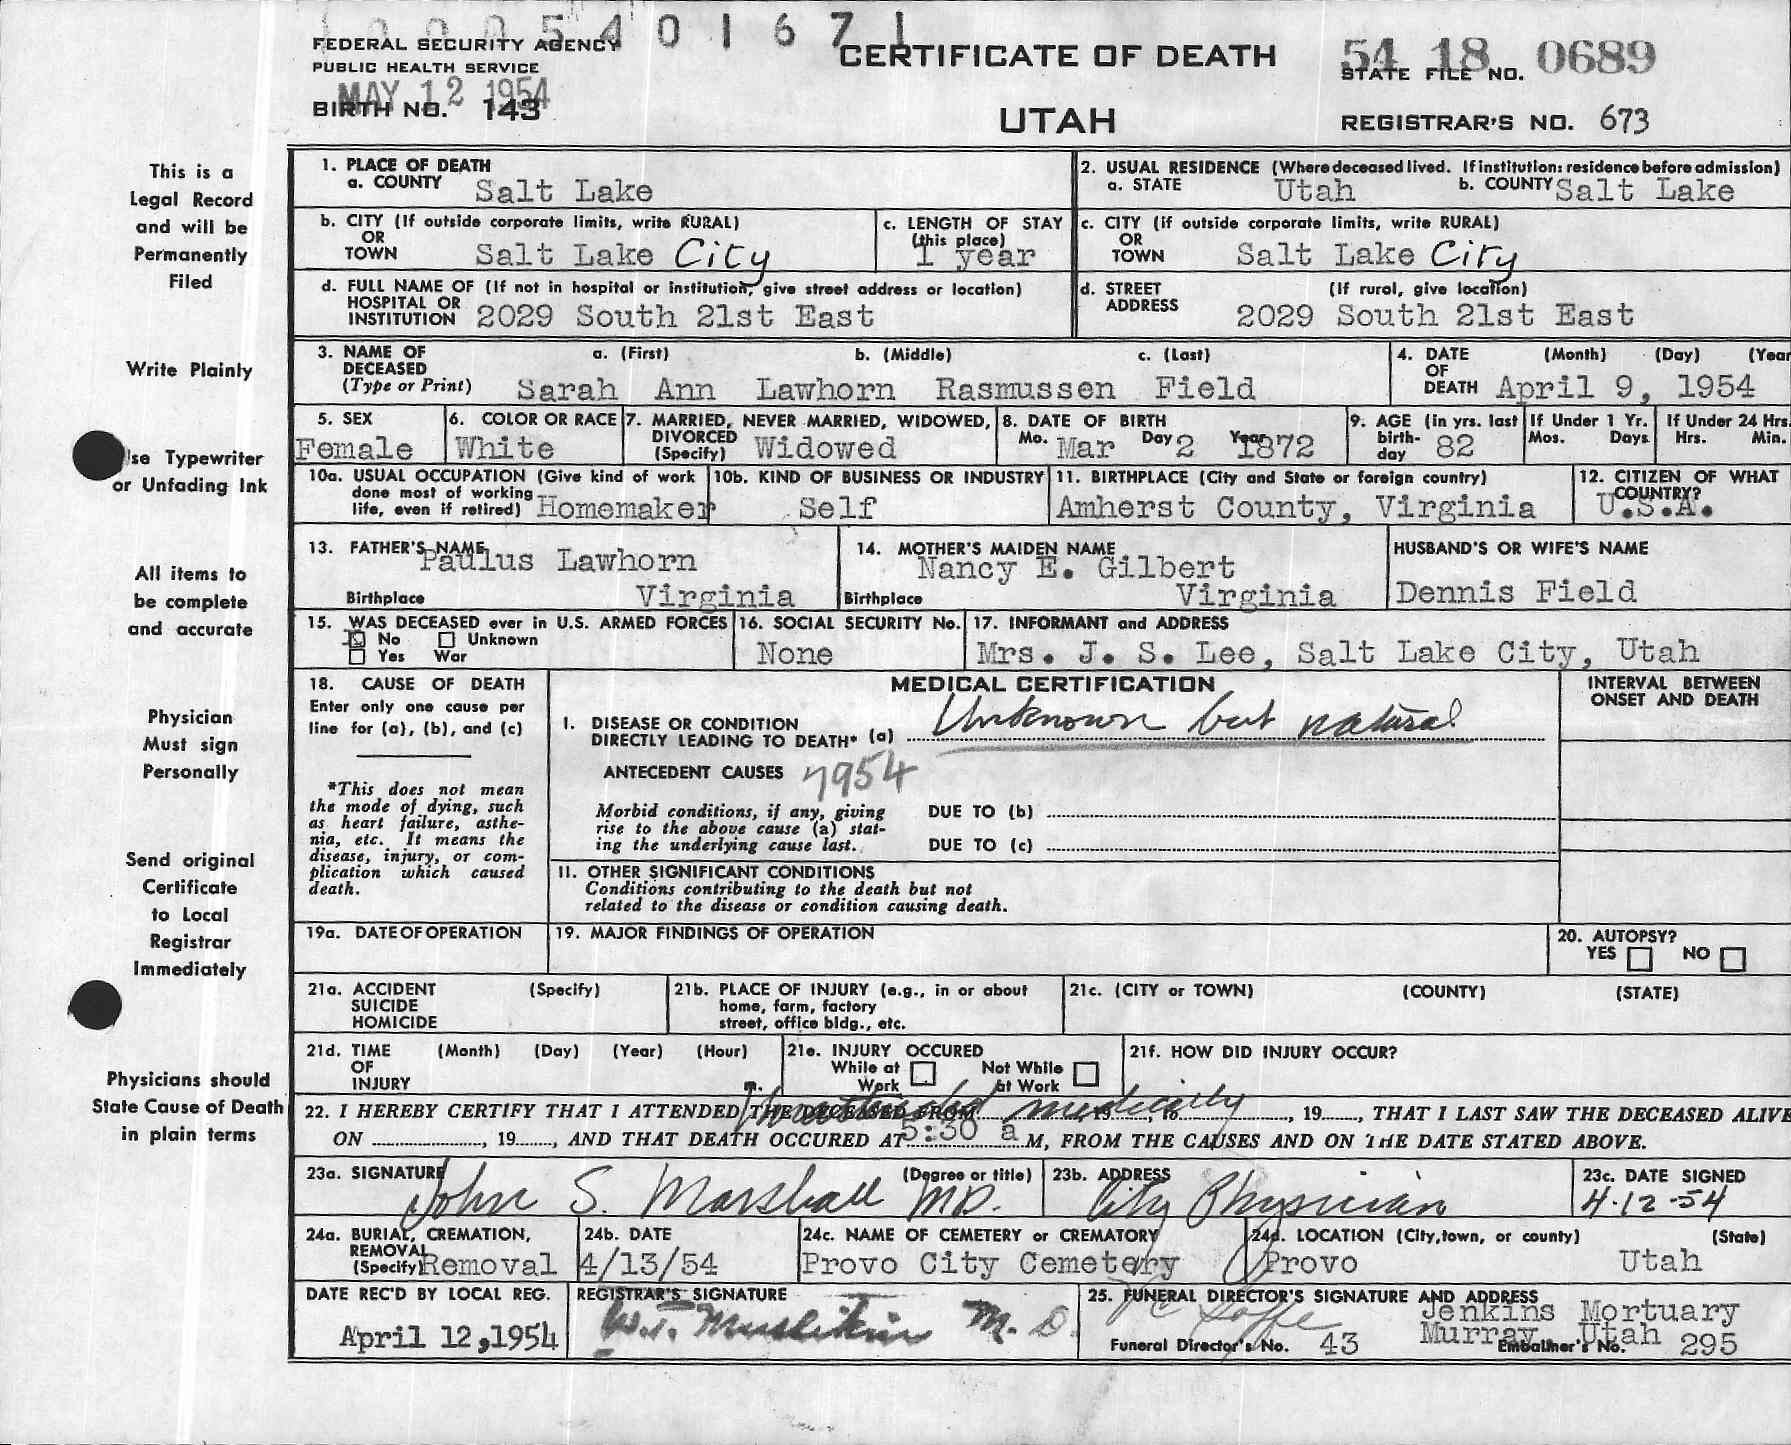 1 0 0 0 5 4 0 1 6 7 1
FEDERAL SECURITY AGENCY
PUBLIC HEALTH SERVICE
MAY 12 1954
BIRTH NO. 143
CERTIFICATE OF DEATH
UTAH
54 18 0689
STATE FILE NO.
REGISTRAR'S NO. 673
This is a
Legal Record
and will be
Permanently
Filed
Write Plainly
se Typewriter
or Unfading Ink
All items to
be complete
and accurate
Physician
Must sign
Personally
Send original
Certificate
to Local
Registrar
Immediately
Physicians should
State Cause of Death
in plain terms
1. PLACE OF DEATH
a. COUNTY Salt Lake
2. USUAL RESIDENCE (Where deceased lived. If institution: residence before admission)
a. STATE Utah b. COUNTY Salt Lake
b. CITY (If outside corporate limits, write RURAL)
OR
TOWN Salt Lake City
c. LENGTH OF STAY
(this place)
1 year
c. CITY (if outside corporate limits, write RURAL)
OR
TOWN Salt Lake City
d. FULL NAME OF (If not in hospital or institution, give street address or location)
HOSPITAL OR
INSTITUTION 2029 South 21st East
d. STREET (If rural, give location)
ADDRESS
2029 South 21st East
3. NAME OF a. (First) b. (Middle) c. (Last)
DECEASED
(Type or Print) Sarah Ann Lawhorn Rasmussen Field
4. DATE (Month) (Day) (Year
OF
DEATH April 9, 1954
5. SEX
Female
6. COLOR OR RACE
White
7. MARRIED, NEVER MARRIED, WIDOWED,
DIVORCED
(Specify) Widowed
8. DATE OF BIRTH
Mo. Mar Day 2 Year 1872
9. AGE (in yrs. last
birth-
day 82
If Under 1 Yr.
Mos. Days
If Under 24 Hrs.
Hrs. Min.
10a. USUAL OCCUPATION (Give kind of work
done most of working
life, even if retired) Homemaker
10b. KIND OF BUSINESS OR INDUSTRY
Self
11. BIRTHPLACE (City and State or foreign country)
Amherst County, Virginia
12. CITIZEN OF WHAT
COUNTRY?
U.S.A.
13. FATHER'S NAME
Paulus Lawhorn
Birthplace Virginia
14. MOTHER'S MAIDEN NAME
Nancy E. Gilbert
Birthplace Virginia
HUSBAND'S OR WIFE'S NAME
Dennis Field
15. WAS DECEASED ever in U.S. ARMED FORCES
No Unknown
Yes War
16. SOCIAL SECURITY No.
None
17. INFORMANT and ADDRESS
Mrs. J. S. Lee, Salt Lake City, Utah
18. CAUSE OF DEATH
Enter only one cause per
line for (a), (b), and (c)
*This does not mean
the mode of dying, such
as heart failure, asthe-
nia, etc. It means the
disease, injury, or com-
plication which caused
death.
MEDICAL CERTIFICATION
I. DISEASE OR CONDITION
DIRECTLY LEADING TO DEATH* (a) Unknown but natural
ANTECEDENT CAUSES 7954
Morbid conditions, if any, giving
rise to the above cause (a) stat-
ing the underlying cause last.
DUE TO (b)
DUE TO (c)
INTERVAL BETWEEN
ONSET AND DEATH
11. OTHER SIGNIFICANT CONDITIONS
Conditions contributing to the death but not
related to the disease or condition causing death.
19a. DATE OF OPERATION
19. MAJOR FINDINGS OF OPERATION
20. AUTOPSY?
YES NO
21a. ACCIDENT (Specify)
SUICIDE
HOMICIDE
21b. PLACE OF INJURY (e.g., in or about
home, farm, factory
street, office bldg., etc.
21c. (CITY or TOWN) (COUNTY) (STATE)
21d. TIME (Month) (Day) (Year) (Hour)
OF
INJURY m.
21e. INJURY OCCURED
While at Work
Not While at Work
21f. HOW DID INJURY OCCUR?
22. I HEREBY CERTIFY THAT I ATTENDED THE DECEASED FROM 19 , to , 19 , THAT I LAST SAW THE DECEASED ALIVE
Unattended medically
ON , 19 , AND THAT DEATH OCCURED AT 5:30 a M, FROM THE CAUSES AND ON THE DATE STATED ABOVE.
23a. SIGNATURE (Degree or title)
John S. Marshall MD.
23b. ADDRESS
City Physician
23c. DATE SIGNED
4-12-54
24a. BURIAL, CREMATION,
REMOVAL
(Specify) Removal
24b. DATE
4/13/54
24c. NAME OF CEMETERY or CREMATORY
Provo City Cemetery
24d. LOCATION (City, town, or county) (State)
Provo Utah
DATE REC'D BY LOCAL REG.
April 12, 1954
REGISTRAR'S SIGNATURE
M. D.
25. FUNERAL DIRECTOR'S SIGNATURE AND ADDRESS
Jenkins Mortuary
Murray, Utah
Funeral Director's No. 43 Embalmer's No. 295